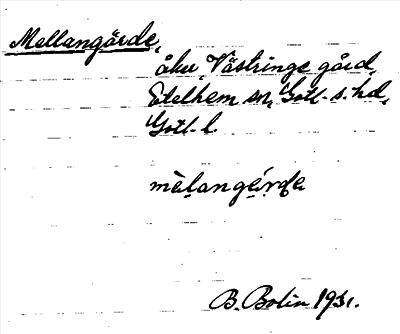 Mellangärde,
åker, Västringe gård,
Etelhem sn, Gotl. s. hd,
Gotl. l.
B. Bolin 1931.